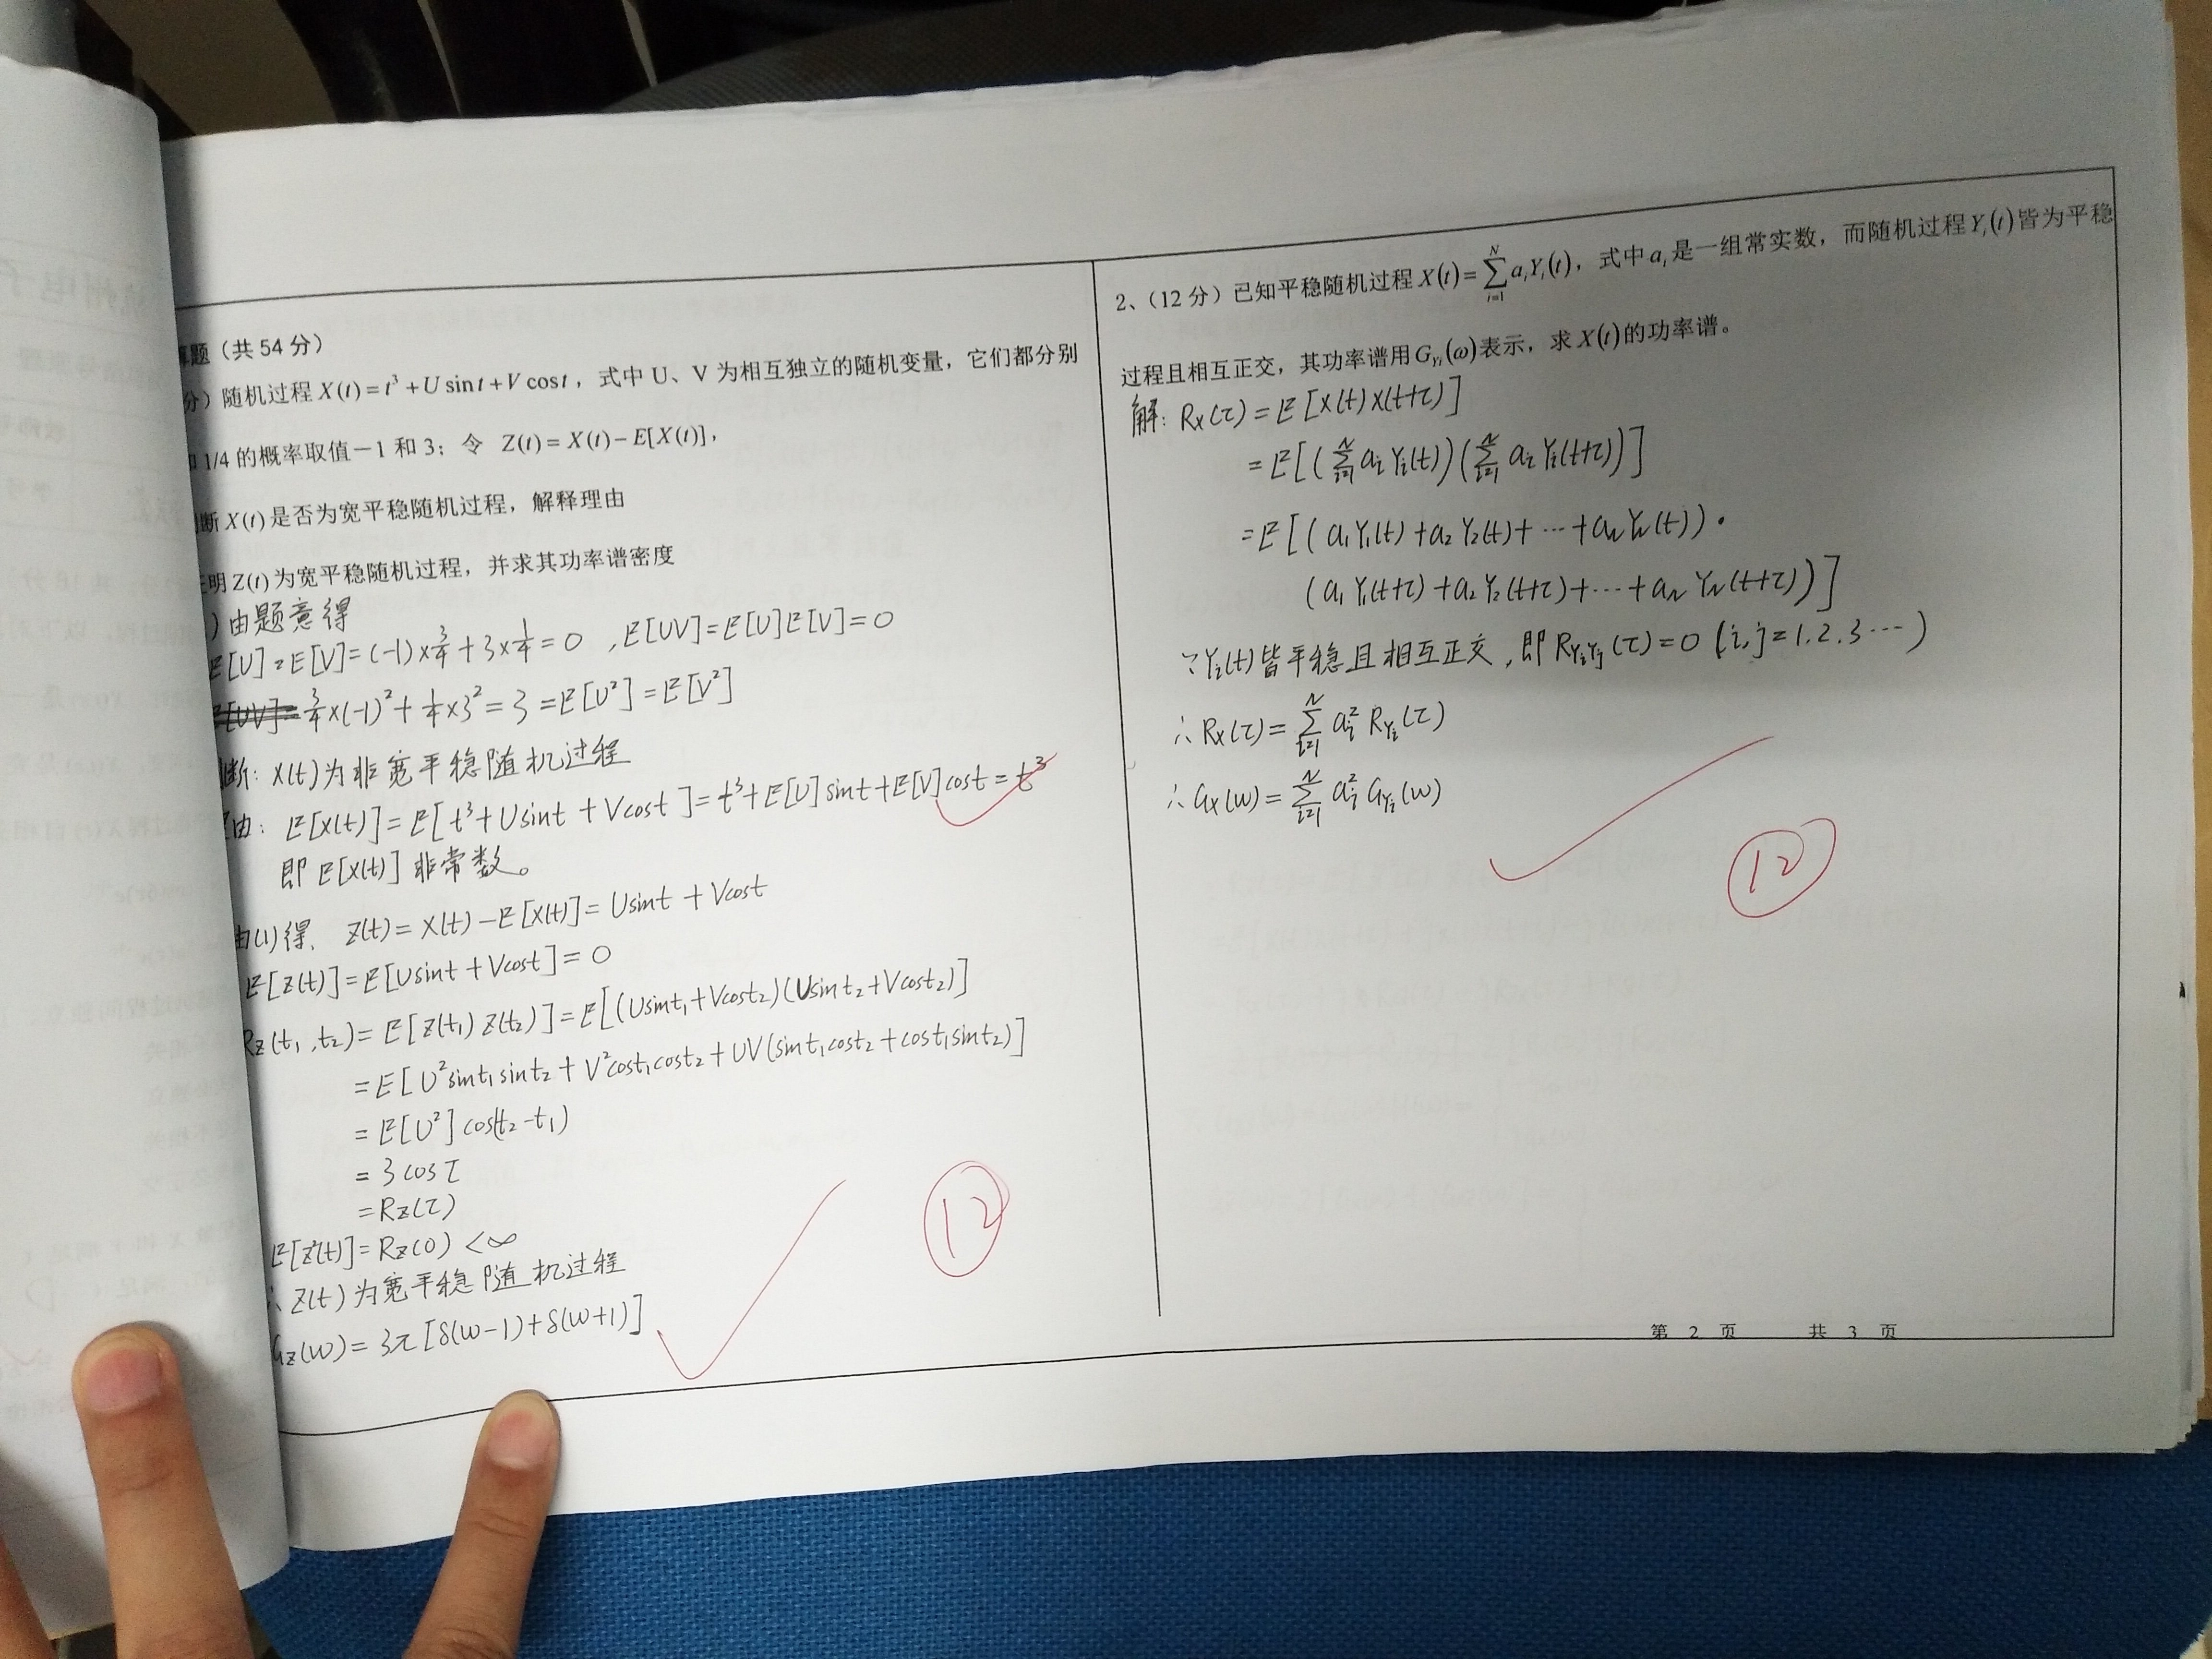 题（共 54 分）
分）随机过程 X(t)=t³+U sin t+V cos t，式中 U、V 为相互独立的随机变量，它们都分别
1/4 的概率取值－1 和 3；令 Z(t)=X(t)−E[X(t)]，
断 X(t)是否为宽平稳随机过程，解释理由
明 Z(t)为宽平稳随机过程，并求其功率谱密度
)由题意得
E[U]=E[V]=(-1)×3/4+3×1/4=0 ,E[UV]=E[U]E[V]=0
3/4×(-1)²+1/4×3²=3=E[U²]=E[V²]
断: X(t)为非宽平稳随机过程
由: E[X(t)]=E[t³+Usint+Vcost]=t³+E[U]sint+E[V]cost=t³
即E[X(t)]非常数。
由(1)得, Z(t)=X(t)-E[X(t)]=Usint+Vcost
E[Z(t)]=E[Usint+Vcost]=0
Rz(t₁,t₂)=E[Z(t₁)Z(t₂)]=E[(Usint₁+Vcost₂)(Usint₂+Vcost₂)]
=E[U²sint₁sint₂+V²cost₁cost₂+UV(sint₁cost₂+cost₁sint₂)]
=E[U²]cos(t₂-t₁)
=3cosτ
=Rz(τ)
E[Z²(t)]=Rz(0)<∞
∴Z(t)为宽平稳随机过程
Gz(w)=3π[δ(w-1)+δ(w+1)]
12
2、（12 分）已知平稳随机过程 X(t)=∑_{i=1}^{N} aᵢYᵢ(t)，式中 aᵢ 是一组常实数，而随机过程 Yᵢ(t)皆为平稳
过程且相互正交，其功率谱用 G_{Yi}(ω)表示，求 X(t)的功率谱。
解: Rx(τ)=E[X(t)X(t+τ)]
=E[(∑_{i=1}^{N} aᵢYᵢ(t))(∑_{i=1}^{N} aᵢYᵢ(t+τ))]
=E[(a₁Y₁(t)+a₂Y₂(t)+⋯+a_N Y_N(t))·
(a₁Y₁(t+τ)+a₂Y₂(t+τ)+⋯+a_N Y_N(t+τ))]
∵Yᵢ(t)皆平稳且相互正交,即R_{YiYj}(τ)=0 (i,j=1.2.3⋯)
∴Rx(τ)=∑_{i=1}^{N} aᵢ²R_{Yi}(τ)
∴Gx(w)=∑_{i=1}^{N} aᵢ²G_{Yi}(w)
12
第 2 页 共 3 页